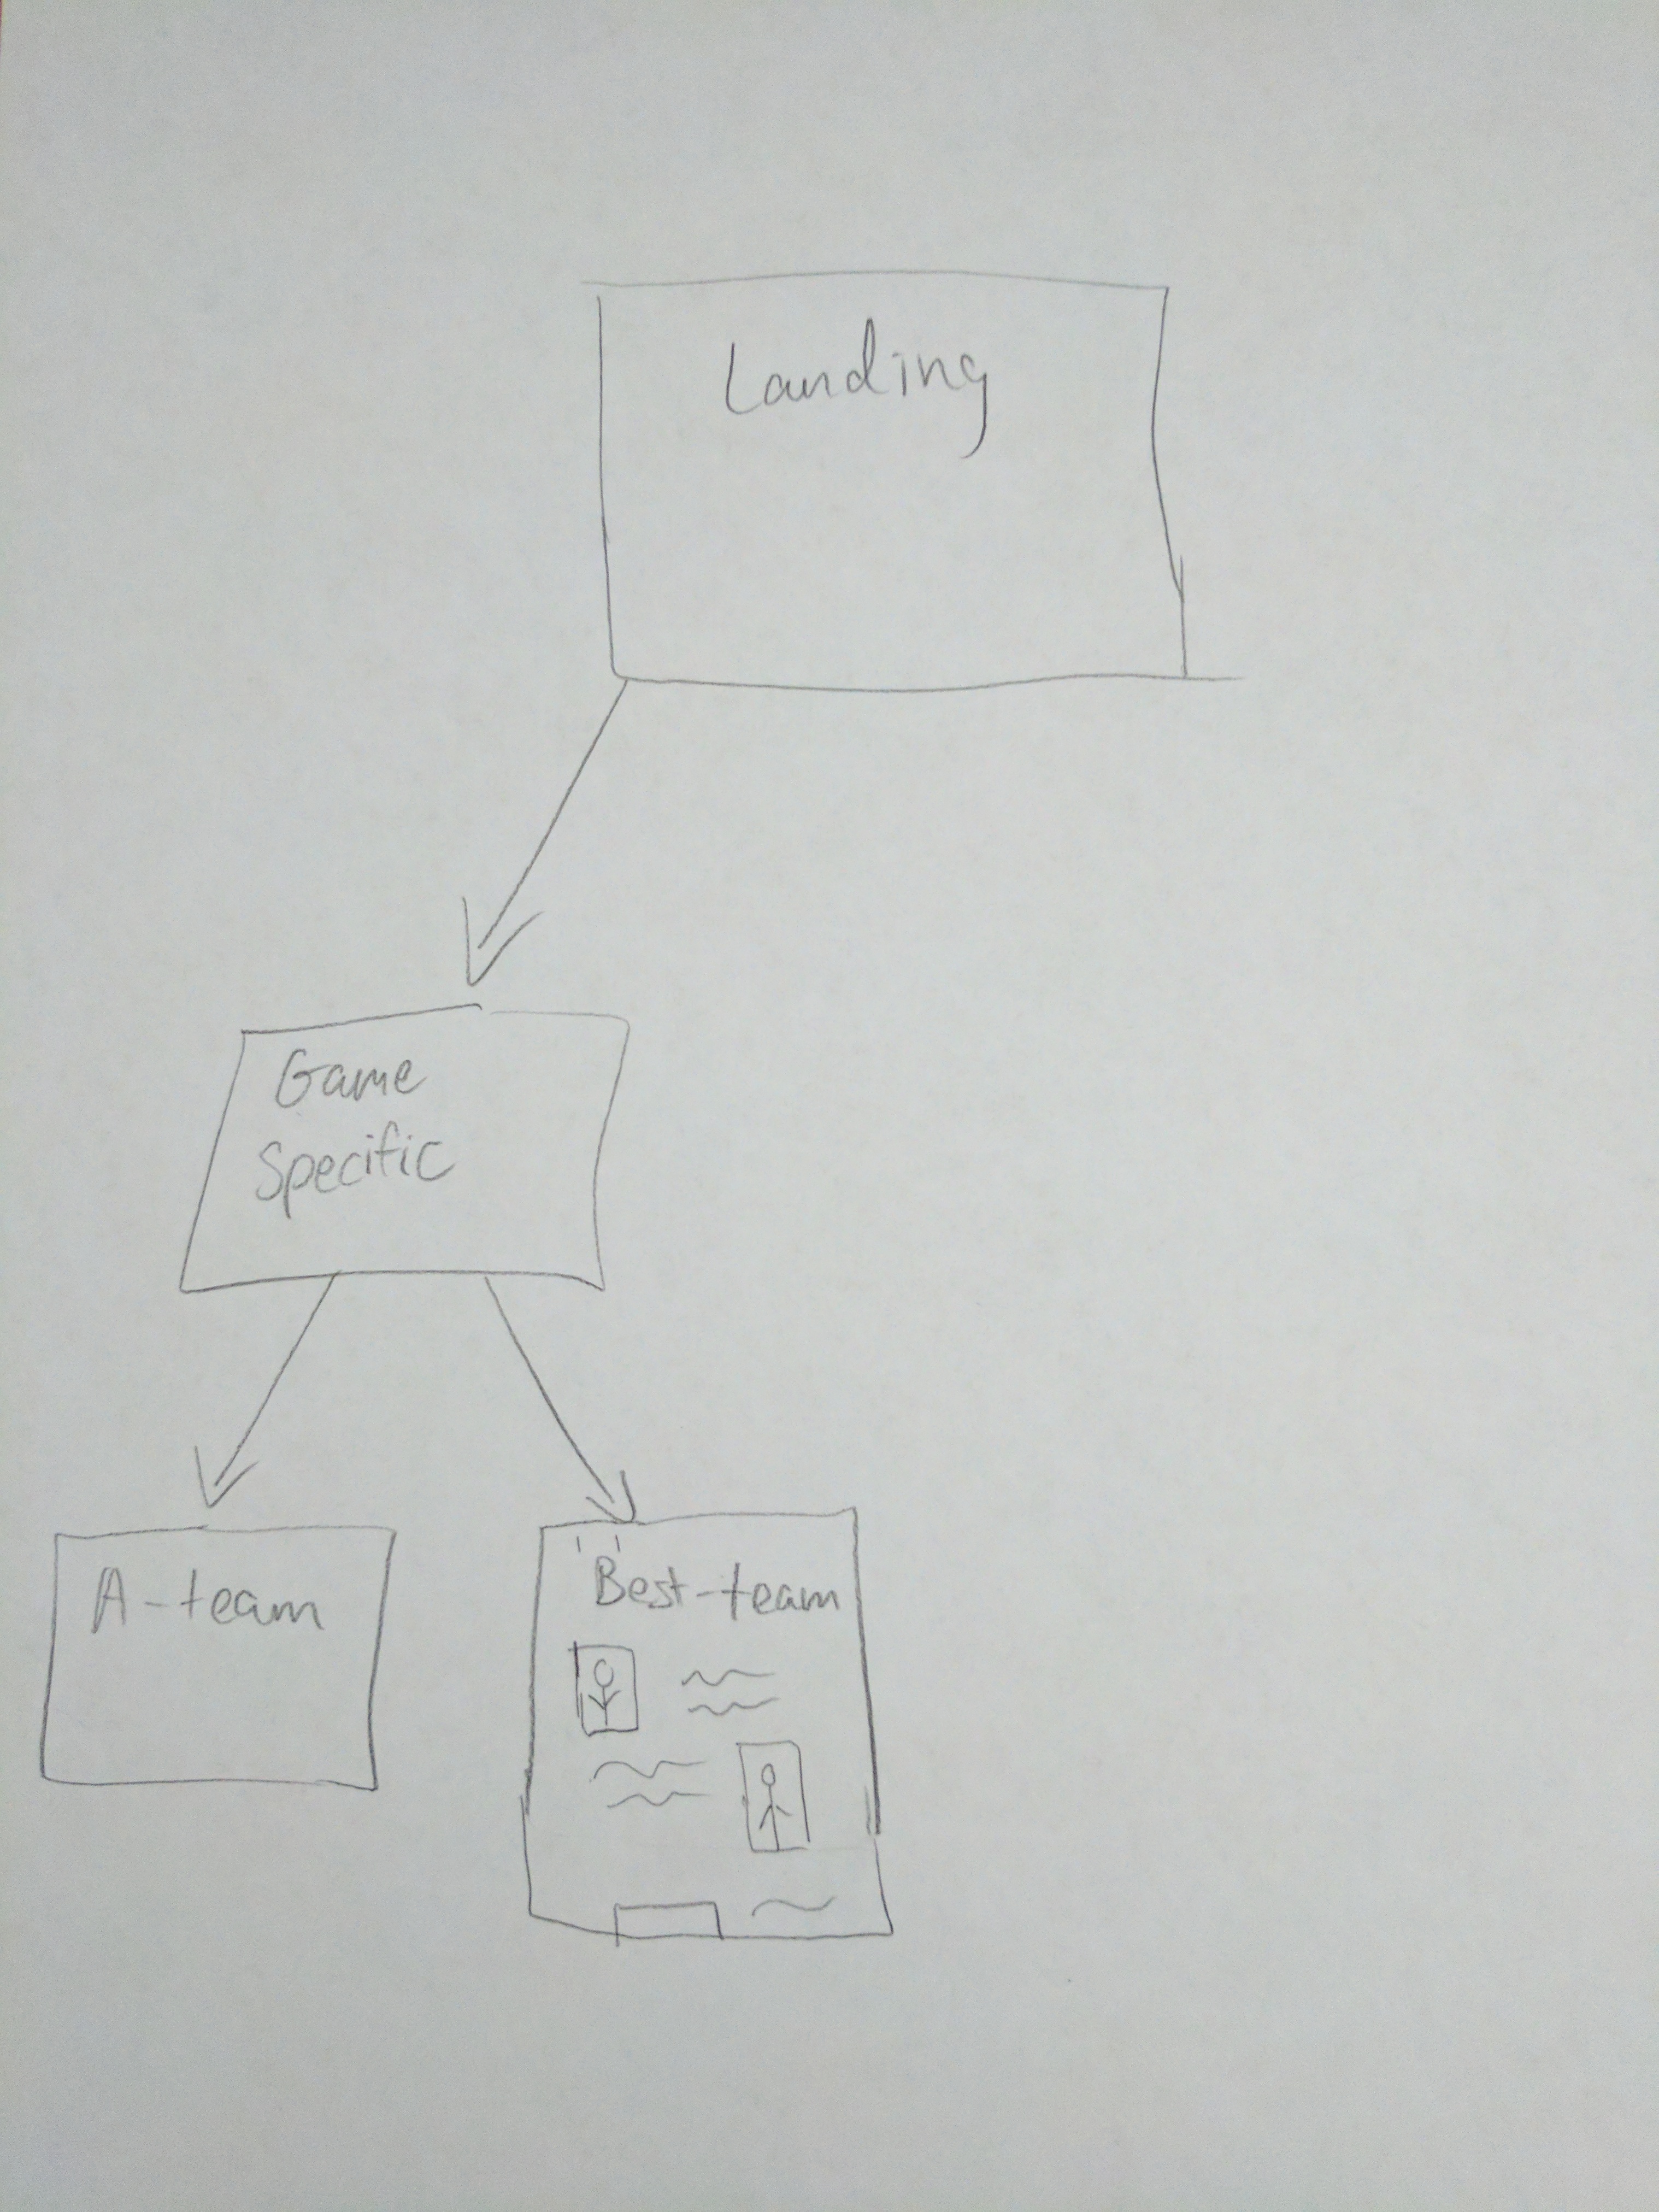 Landing
Game
Specific
A-team
Best-team